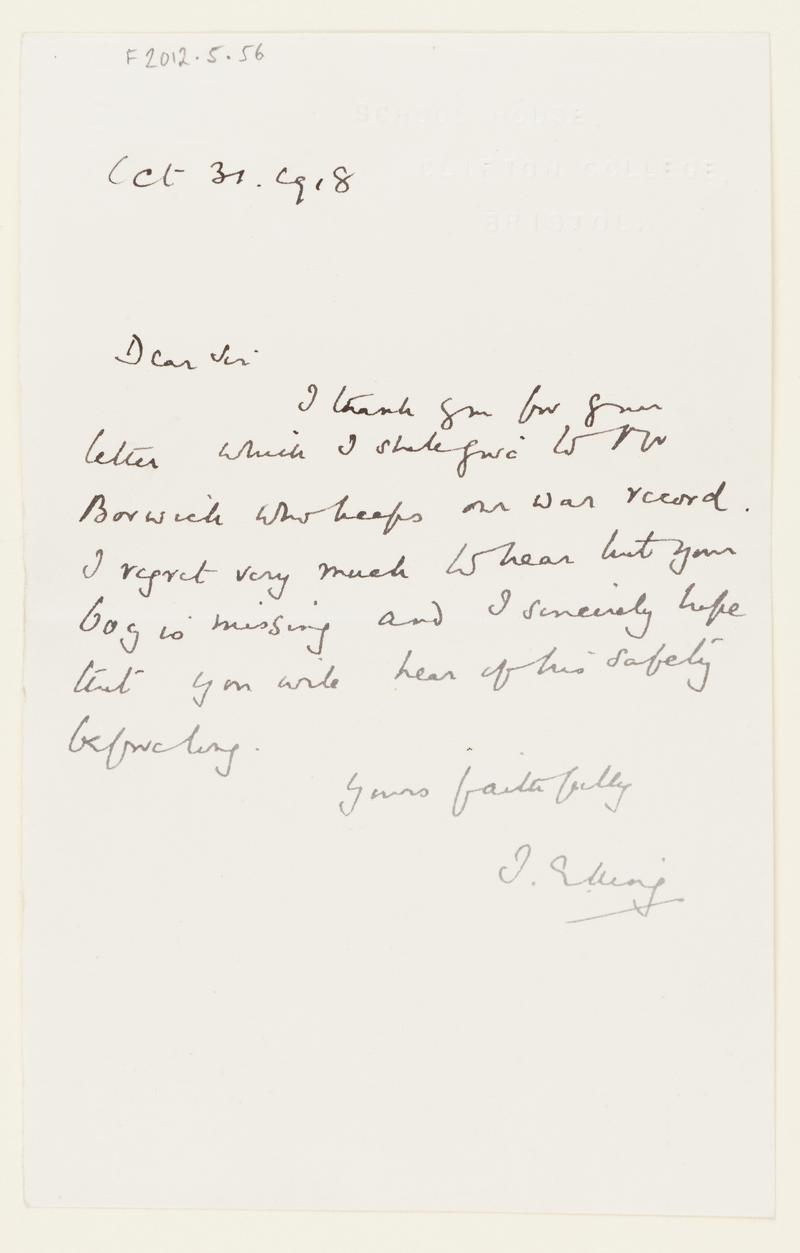 F2012.5.56
SCHOOL HOUSE,
CLIFTON COLLEGE,
BRISTOL.
Oct 31. 1918
Dear Sir
I thank you for your
letter which I shall give to Mr
Borwick who keeps our war record.
I regret very much to hear that your
boy is missing and I sincerely hope
that you will hear of his safety
before long.
Yours faithfully
J.